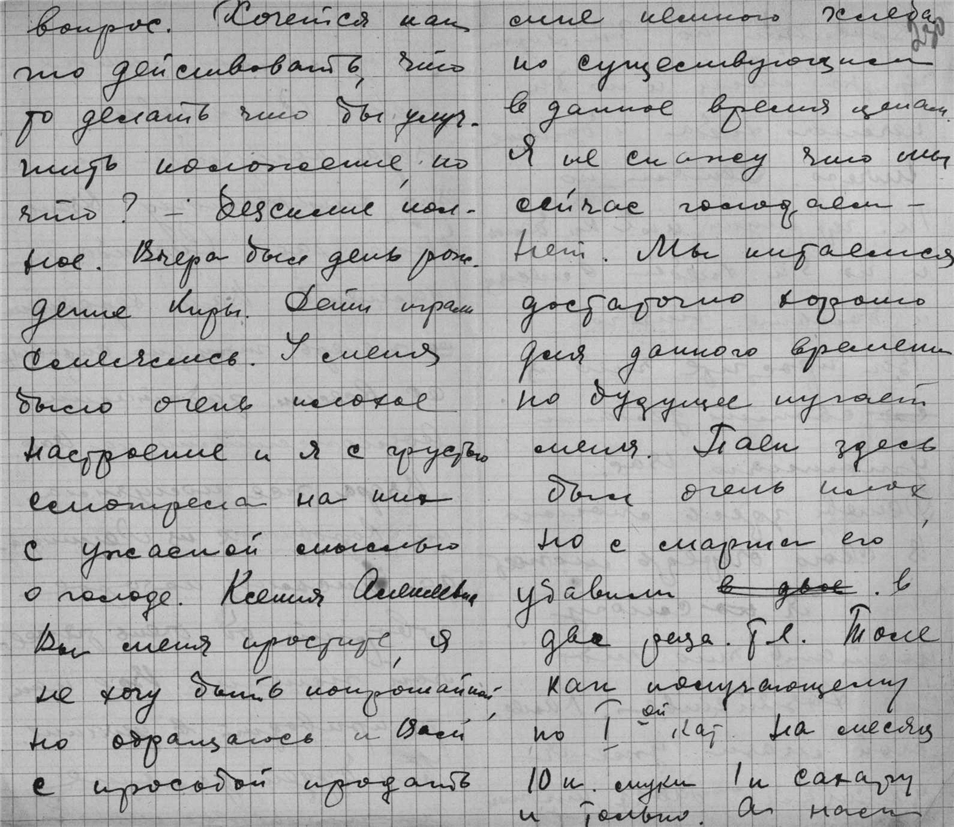 вопрос. Хочется как
то действовать, что
то делать что бы улуч-
шить положение, но
что? — Безсилие пол-
ное. Вчера был день рож-
дение Киры. Дети играли
смеялись. У меня
было очень плохое
настроение и я с грустью
смотрела на них
с ужасной мыслью
о голоде. Ксения Алексеевна
Вы меня простите, я
не хочу быть попрошайкой,
но обращаюсь к Вам
с просьбой продать
мне немного хлеба
по существующим
в данное время ценам.
Я не скажу что мы
сейчас голодаем —
нет. Мы питаемся
достаточно хорошо
для данного времени
но будущее пугает
меня. Паек здесь
был очень плох,
но с марта его
убавили в двое . в
два раза. Т.е. Толе
как получающему
по I ой кат. на месяц
10 к. муки 1 к сахару
и только. А нам